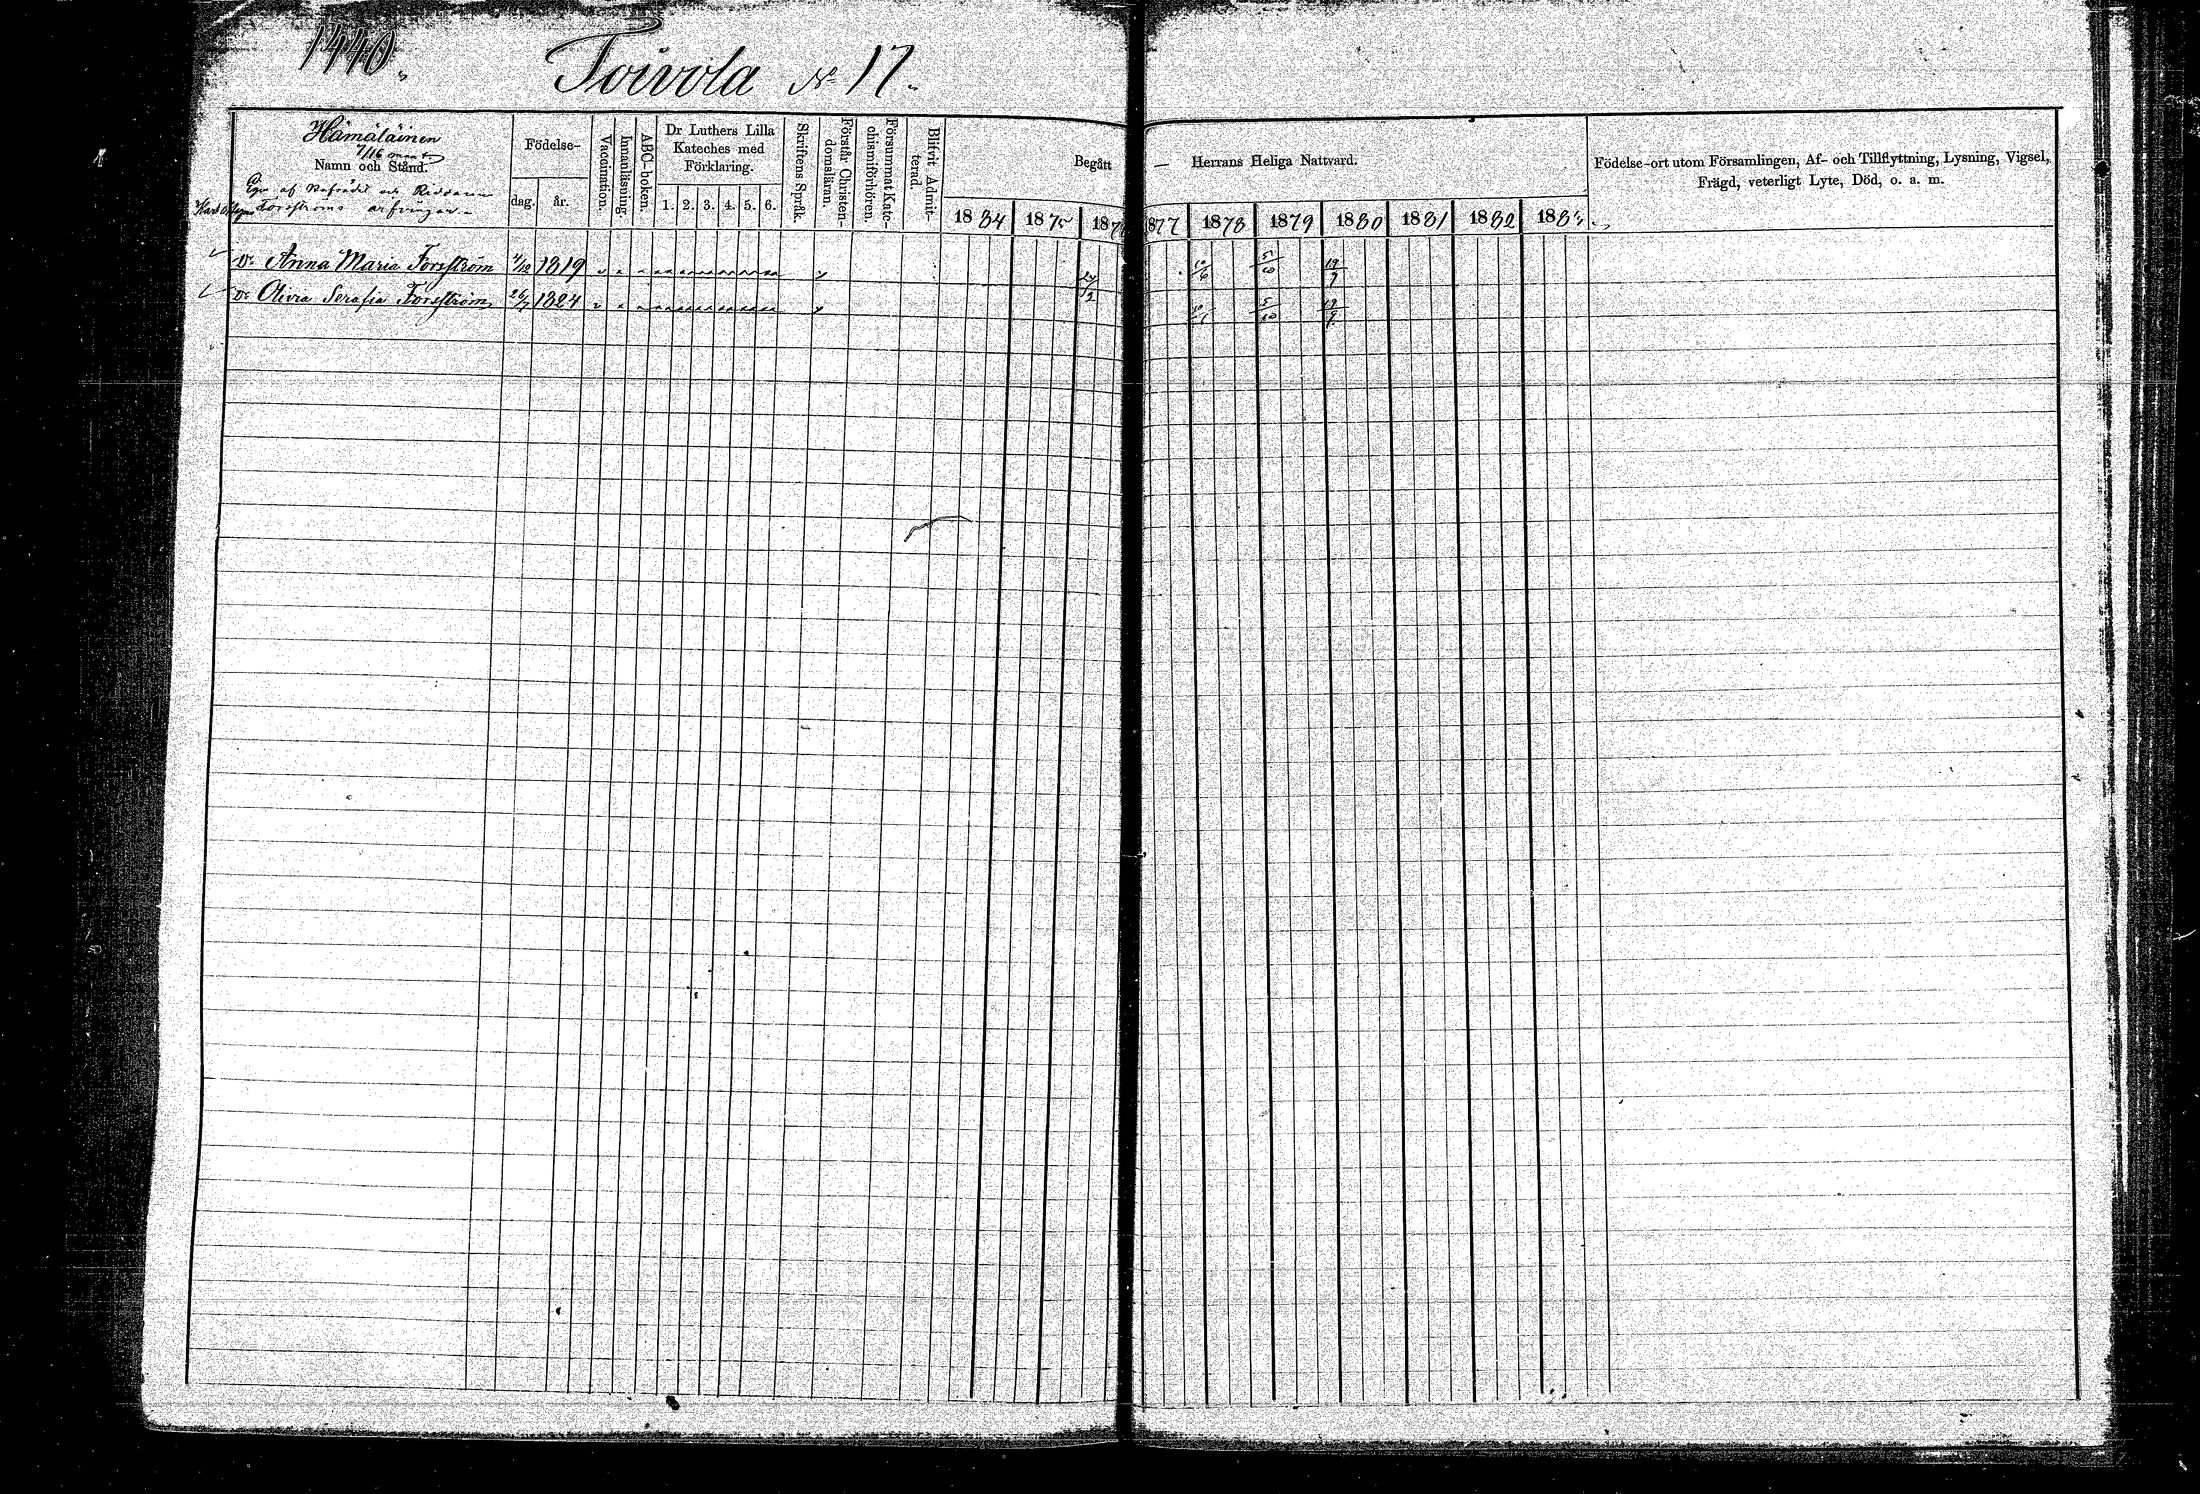 1440.
Toivola No 17.
Hämäläinen
7/16 mant
Namn och Stånd.
Eges af Hofrådet och Riddaren
Forsströms arfvingar.
Födelse-
dag. år.
Vaccination.
Innanläsning
ABC-boken.
Dr Luthers Lilla
Kateches med
Förklaring.
1. 2. 3. 4. 5. 6.
Skriftens Språk.
Förstår Christen-
domsläran.
Försummat Kate-
chismiförhören.
Blifvit Admit-
terad.
Begått — Herrans Heliga Nattvard.
1884 1875 1876 1877 1878 1879 1880 1881 1882 1883
Födelse-ort utom Församlingen, Af- och Tillflyttning, Lysning, Vigsel,
Frägd, veterligt Lyte, Död, o. a. m.
Anna Maria Forsström 1/12 1819 10/6 5/10 19/9
Olivia Serafia Forsström 26/7 1824 10/6 5/10 19/9